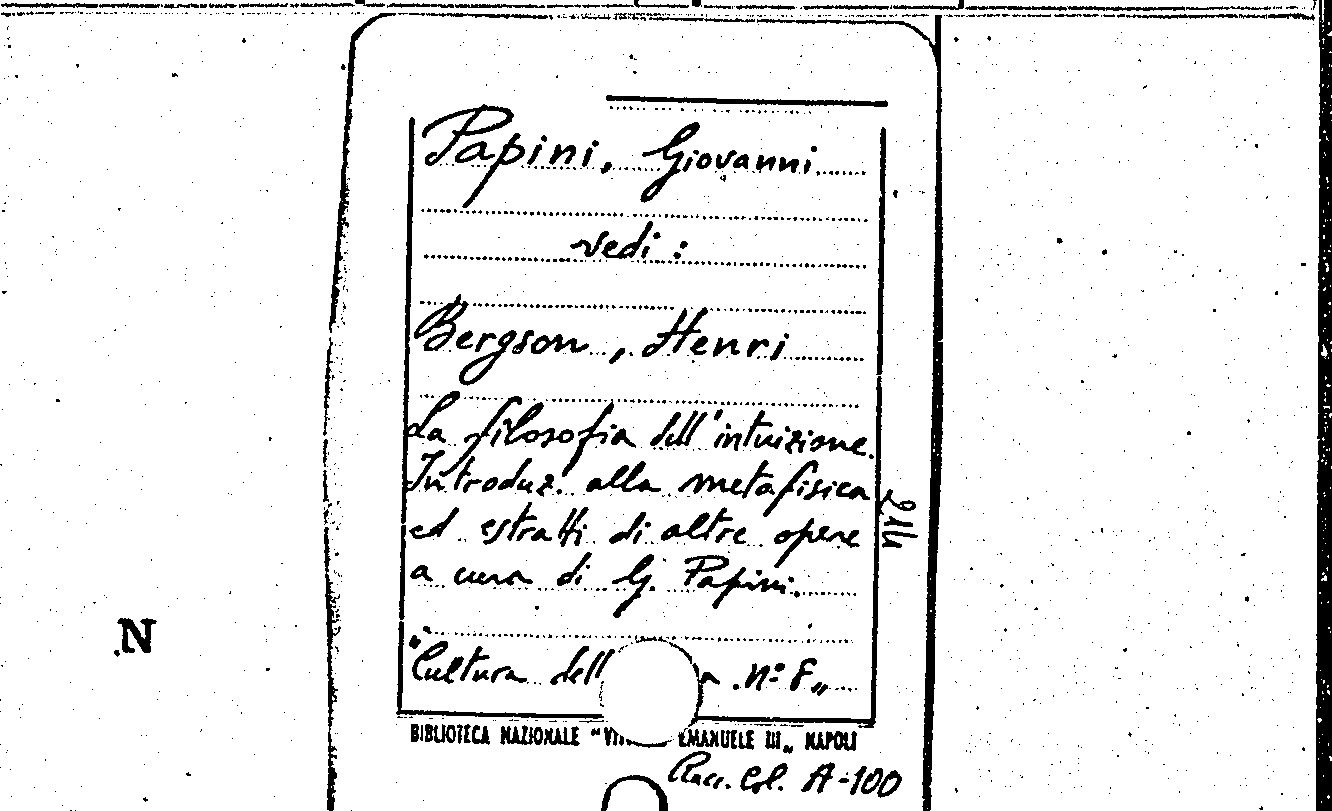 Papini, Giovanni
vedi :
Bergson, Henri
La filosofia dell'intuizione.
Introduz. alla metafisica
ed estratti di altre opere
a cura di G. Papini.
"Cultura dell a . nº 8"
BIBLIOTECA NAZIONALE "VIT EMANUELE III" NAPOLI
Racc. Col. A-100
N